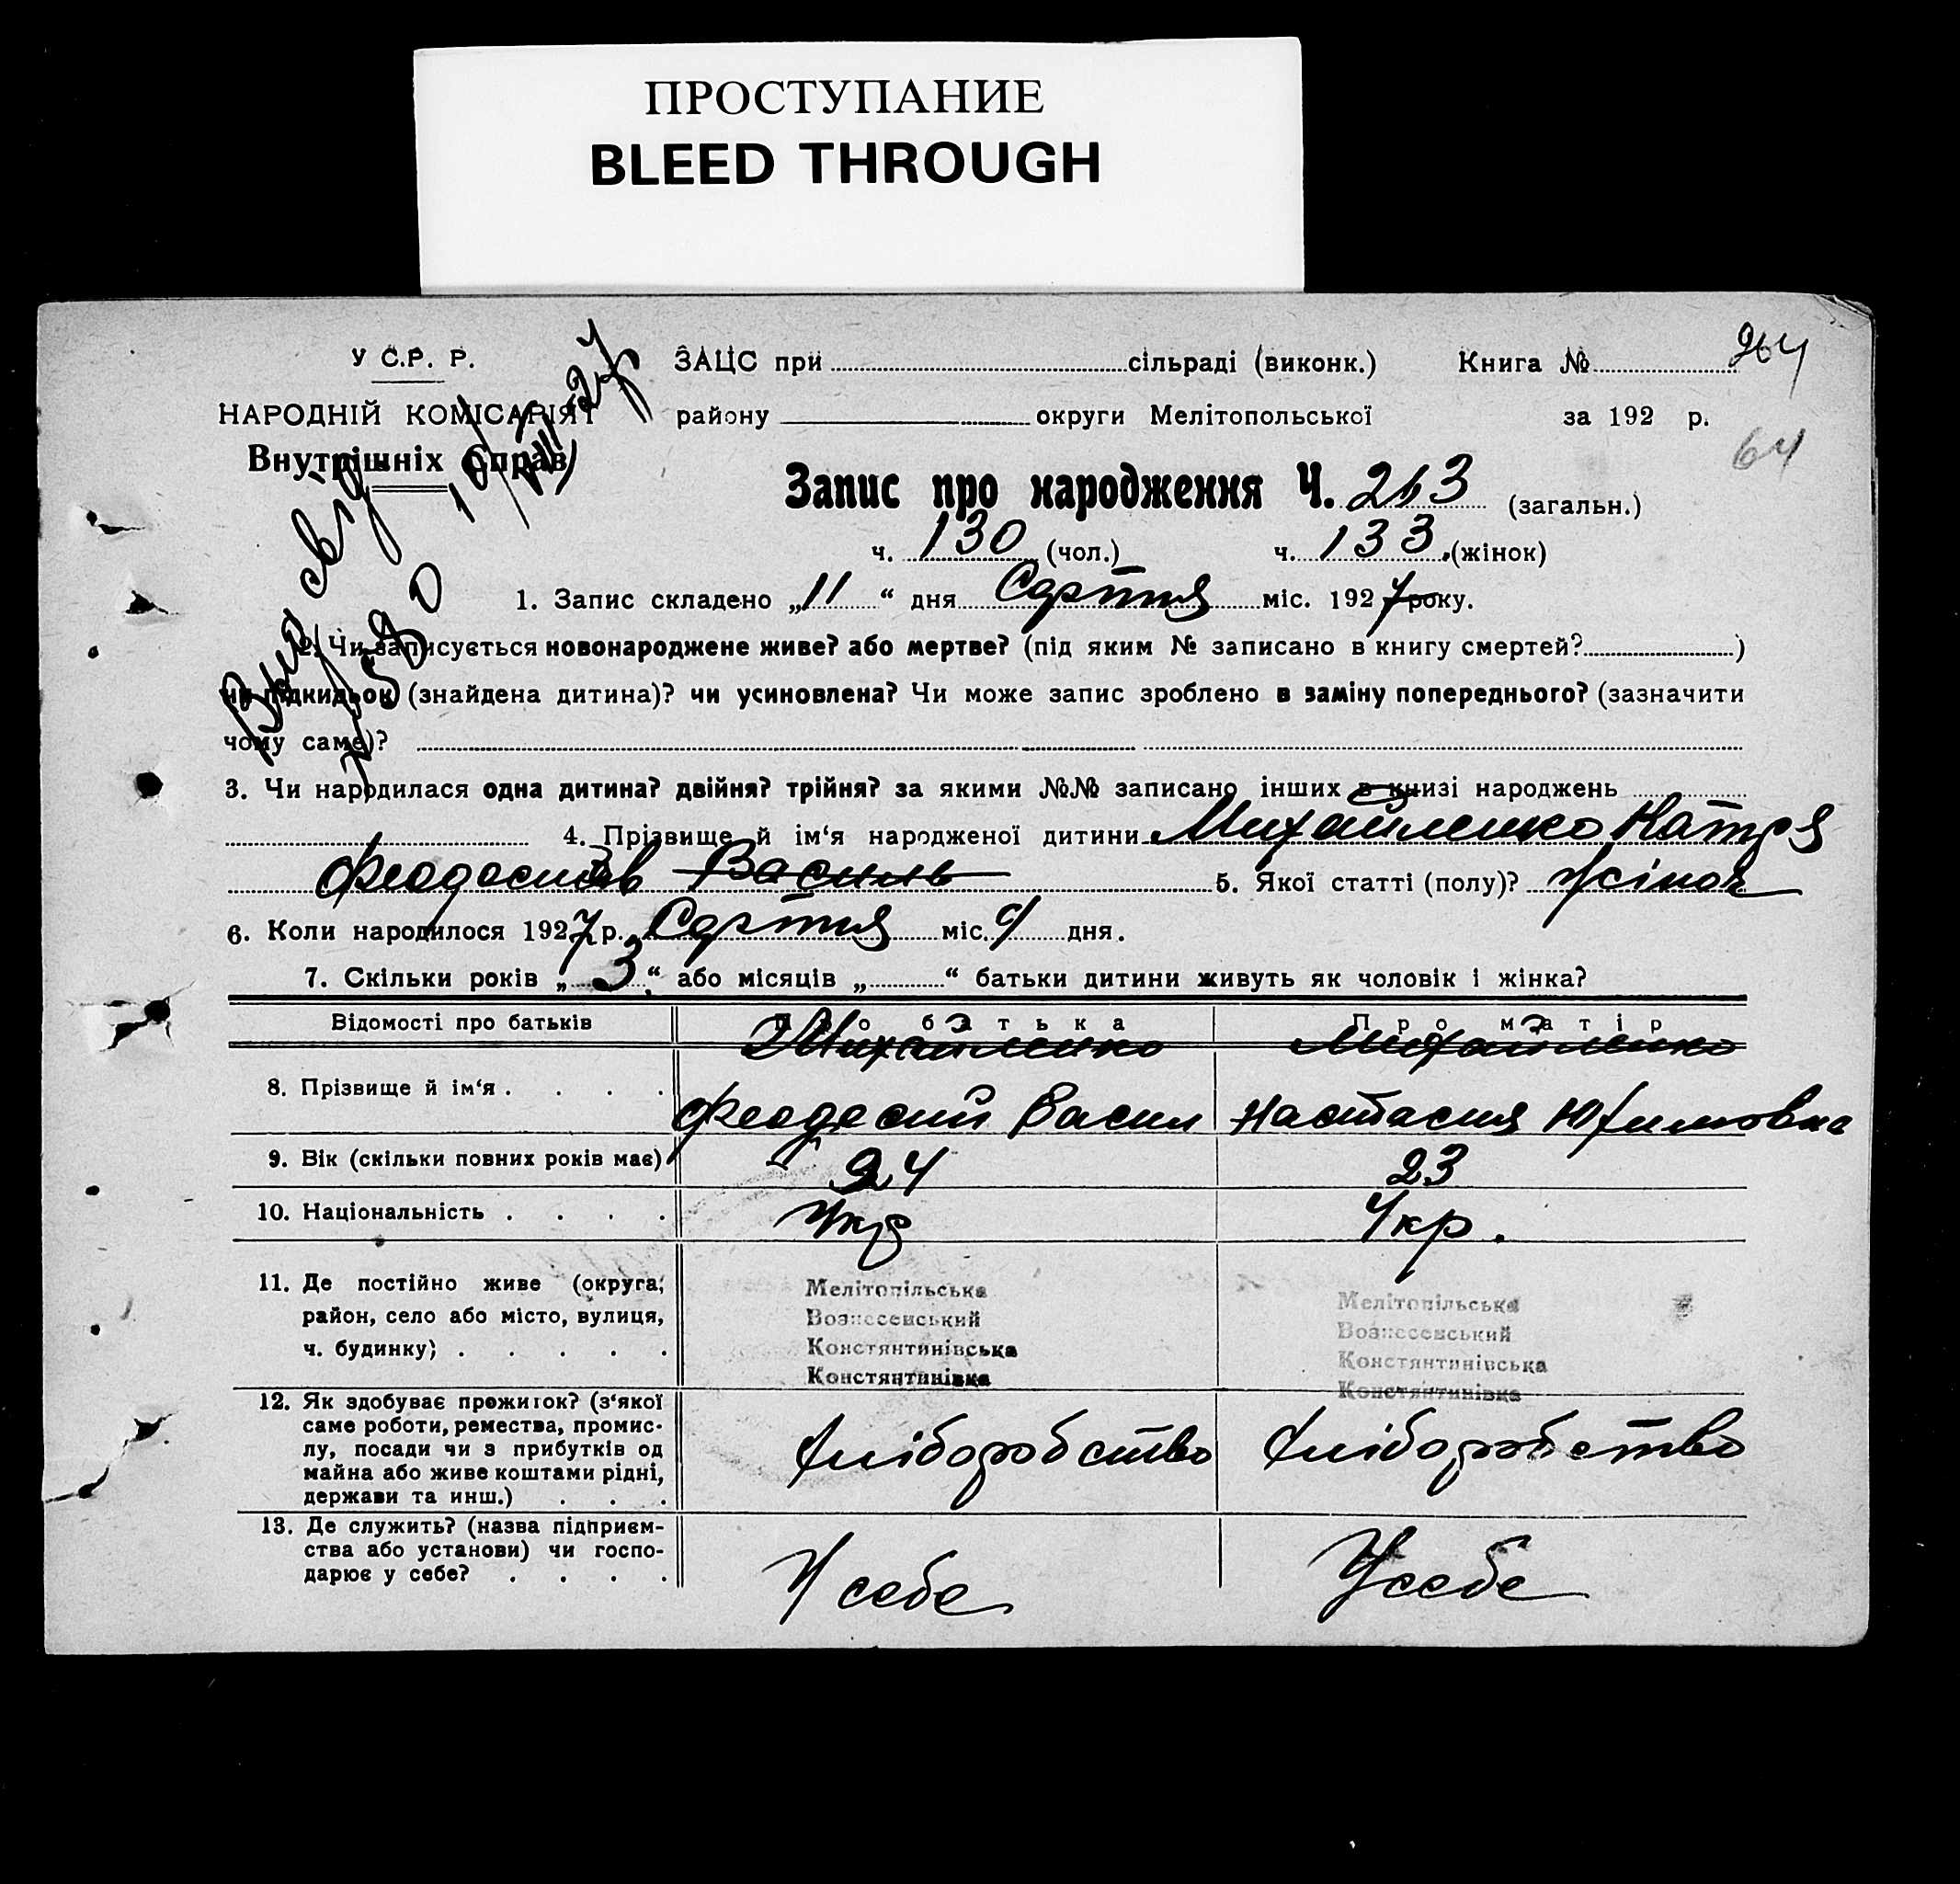 ПРОСТУПАНИЕ
BLEED THROUGH
У С.Р. Р.
НАРОДНІЙ КОМІСАРІЯТ
Внутрішніх Справ
ЗАЦС при сільраді (виконк.) Книга № 264
району округи Мелітопольської за 192 р.
64
Запис про народження Ч. 263 (загальн.)
ч. 130 (чол.) ч. 133 (жінок)
1. Запис складено „11“ дня Серпня міс. 1927 року.
2. Чи записується новонароджене живе? або мертве? (під яким № записано в книгу смертей? )
чи підкидьок (знайдена дитина)? чи усиновлена? Чи може запис зроблено в заміну попереднього? (зазначити
чому саме)?
3. Чи народилася одна дитина? двійня? трійня? за якими №№ записано інших в книзі народжень
4. Прізвище й ім‘я народженої дитини Михайленко Катря
Феодосіїв Василь 5. Якої статті (полу)? жіноч
6. Коли народилося 1927 р. Серпня міс. 9 дня.
7. Скільки років „3“ або місяців „ “ батьки дитини живуть як чоловік і жінка?
Відомості про батьків Про батька Про матір
8. Прізвище й ім‘я . . . . Михайленко Михайленко
Феодосий Васил Настасия Юхимовна
9. Вік (скільки повних років має) 24 23
10. Національність . . . . Укр Укр.
11. Де постійно живе (округа,
район, село або місто, вулиця,
ч. будинку) . . . . .
Мелітопільська
Вознесенський
Константинівська
Константинівка
Мелітопільська
Вознесенський
Константинівська
Константинівка
12. Як здобуває прожиток? (з‘якої
саме роботи, ремества, промис-
лу, посади чи з прибутків од
майна або живе коштами рідні,
держави та инш.) . . .
Хліборобство Хліборобство
13. Де служить? (назва підприєм-
ства або установи) чи госпо-
дарює у себе? . . . .
У себе У себе